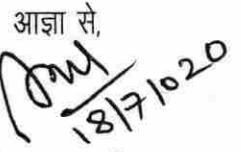 आज्ञा से,
18/7/2020